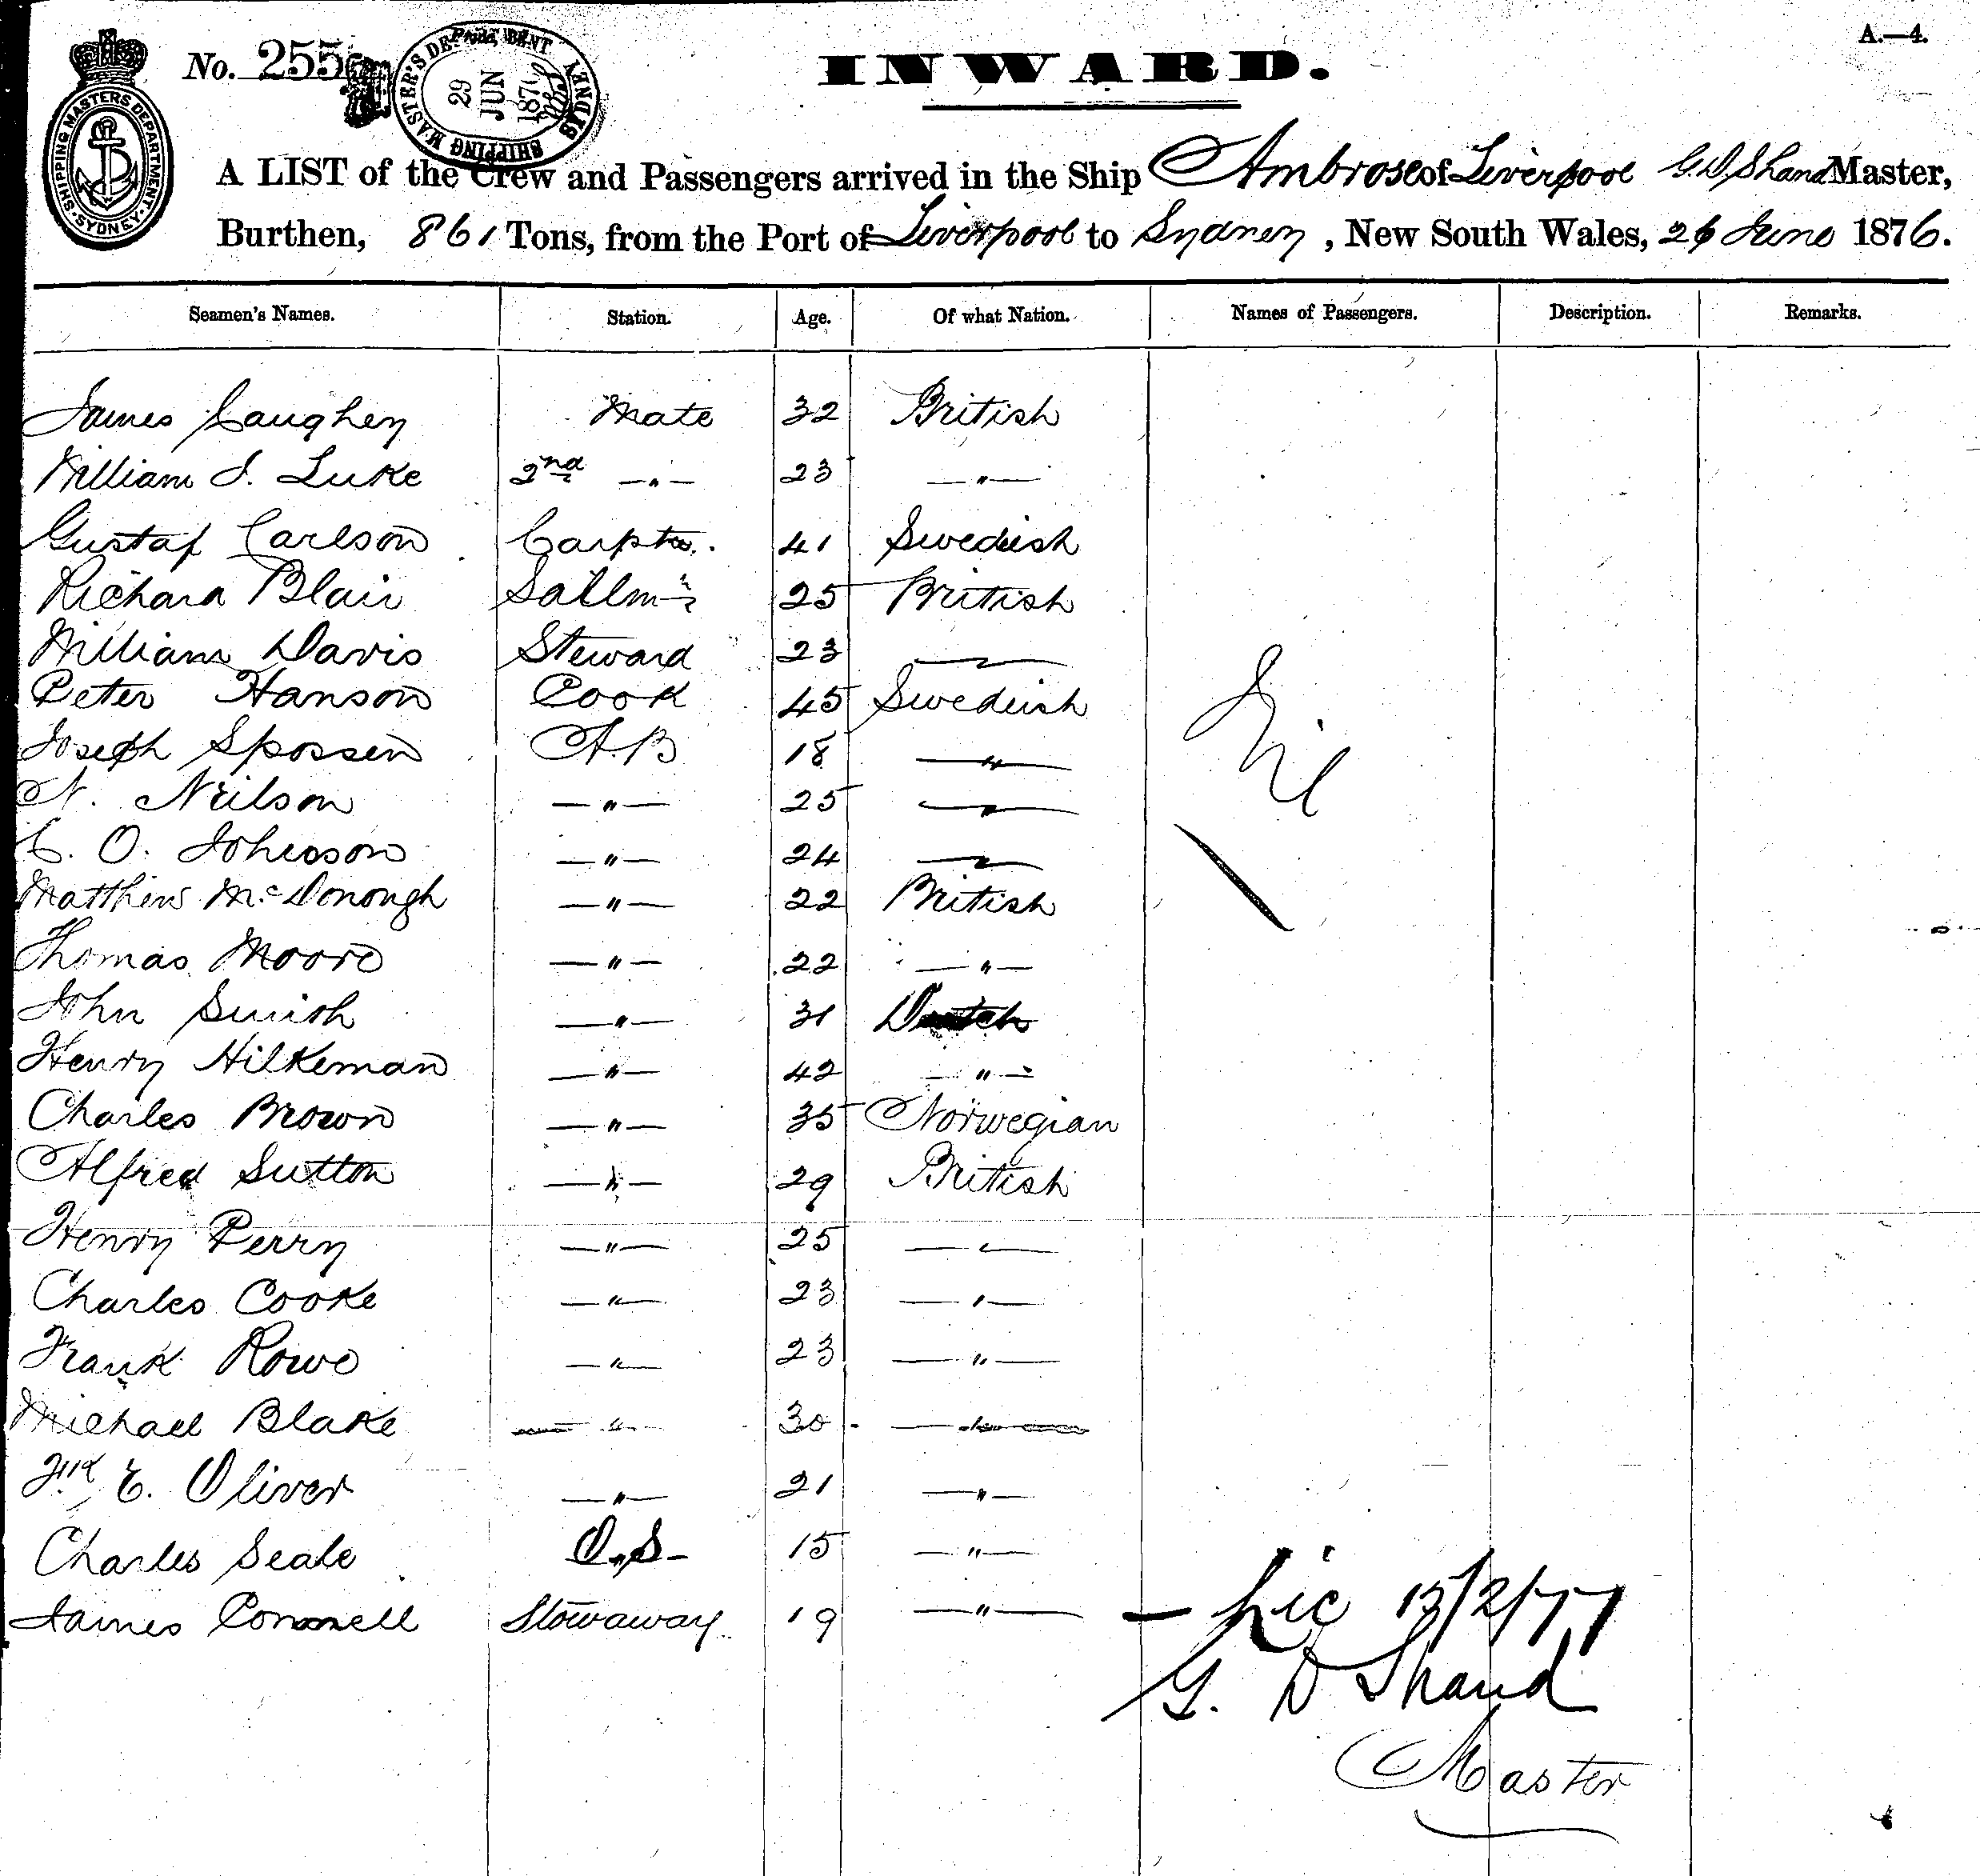 A.—4.
No. 255
SHIPPING MASTERS DEPARTMENT. SYDNEY.
SHIPPING MASTER'S DEPARTMENT SYDNEY
29
JUN
187
INWARD.
A LIST of the Crew and Passengers arrived in the Ship Ambrose of Liverpool G. D. Shand Master,
Burthen, 861 Tons, from the Port of Liverpool to Sydney, New South Wales, 26 June 1876.
Seamen's Names. Station. Age. Of what Nation. Names of Passengers. Description. Remarks.
James Caughey Mate 32 British
William J. Luke 2nd —"— 23 —"—
Gustaf Carlson Carptr. 41 Swedish
Richard Blair Sailmr 25 British
William Davis Steward 23 —"—
Peter Hanson Cook 45 Swedish
Joseph Spossen A.B 18 —"—
N. Neilson —"— 25 —"—
C. O. Johnson —"— 24 —"—
Matthew McDonough —"— 22 British
Thomas Moore —"— 22 —"—
John Smith —"— 31 Dutch
Henry Hilkeman —"— 42 —"—
Charles Brown —"— 35 Norwegian
Alfred Sutton —"— 29 British
Henry Perry —"— 25 —"—
Charles Cooke —"— 23 —"—
Frank Rowe —"— 23 —"—
Michael Blake —"— 30 —"—
E. Oliver —"— 21 —"—
Charles Seale O.S— 15 —"—
James Connell Stowaway 19 —"—
Nil
— Lic 13/2/77
G. D Shand
Master